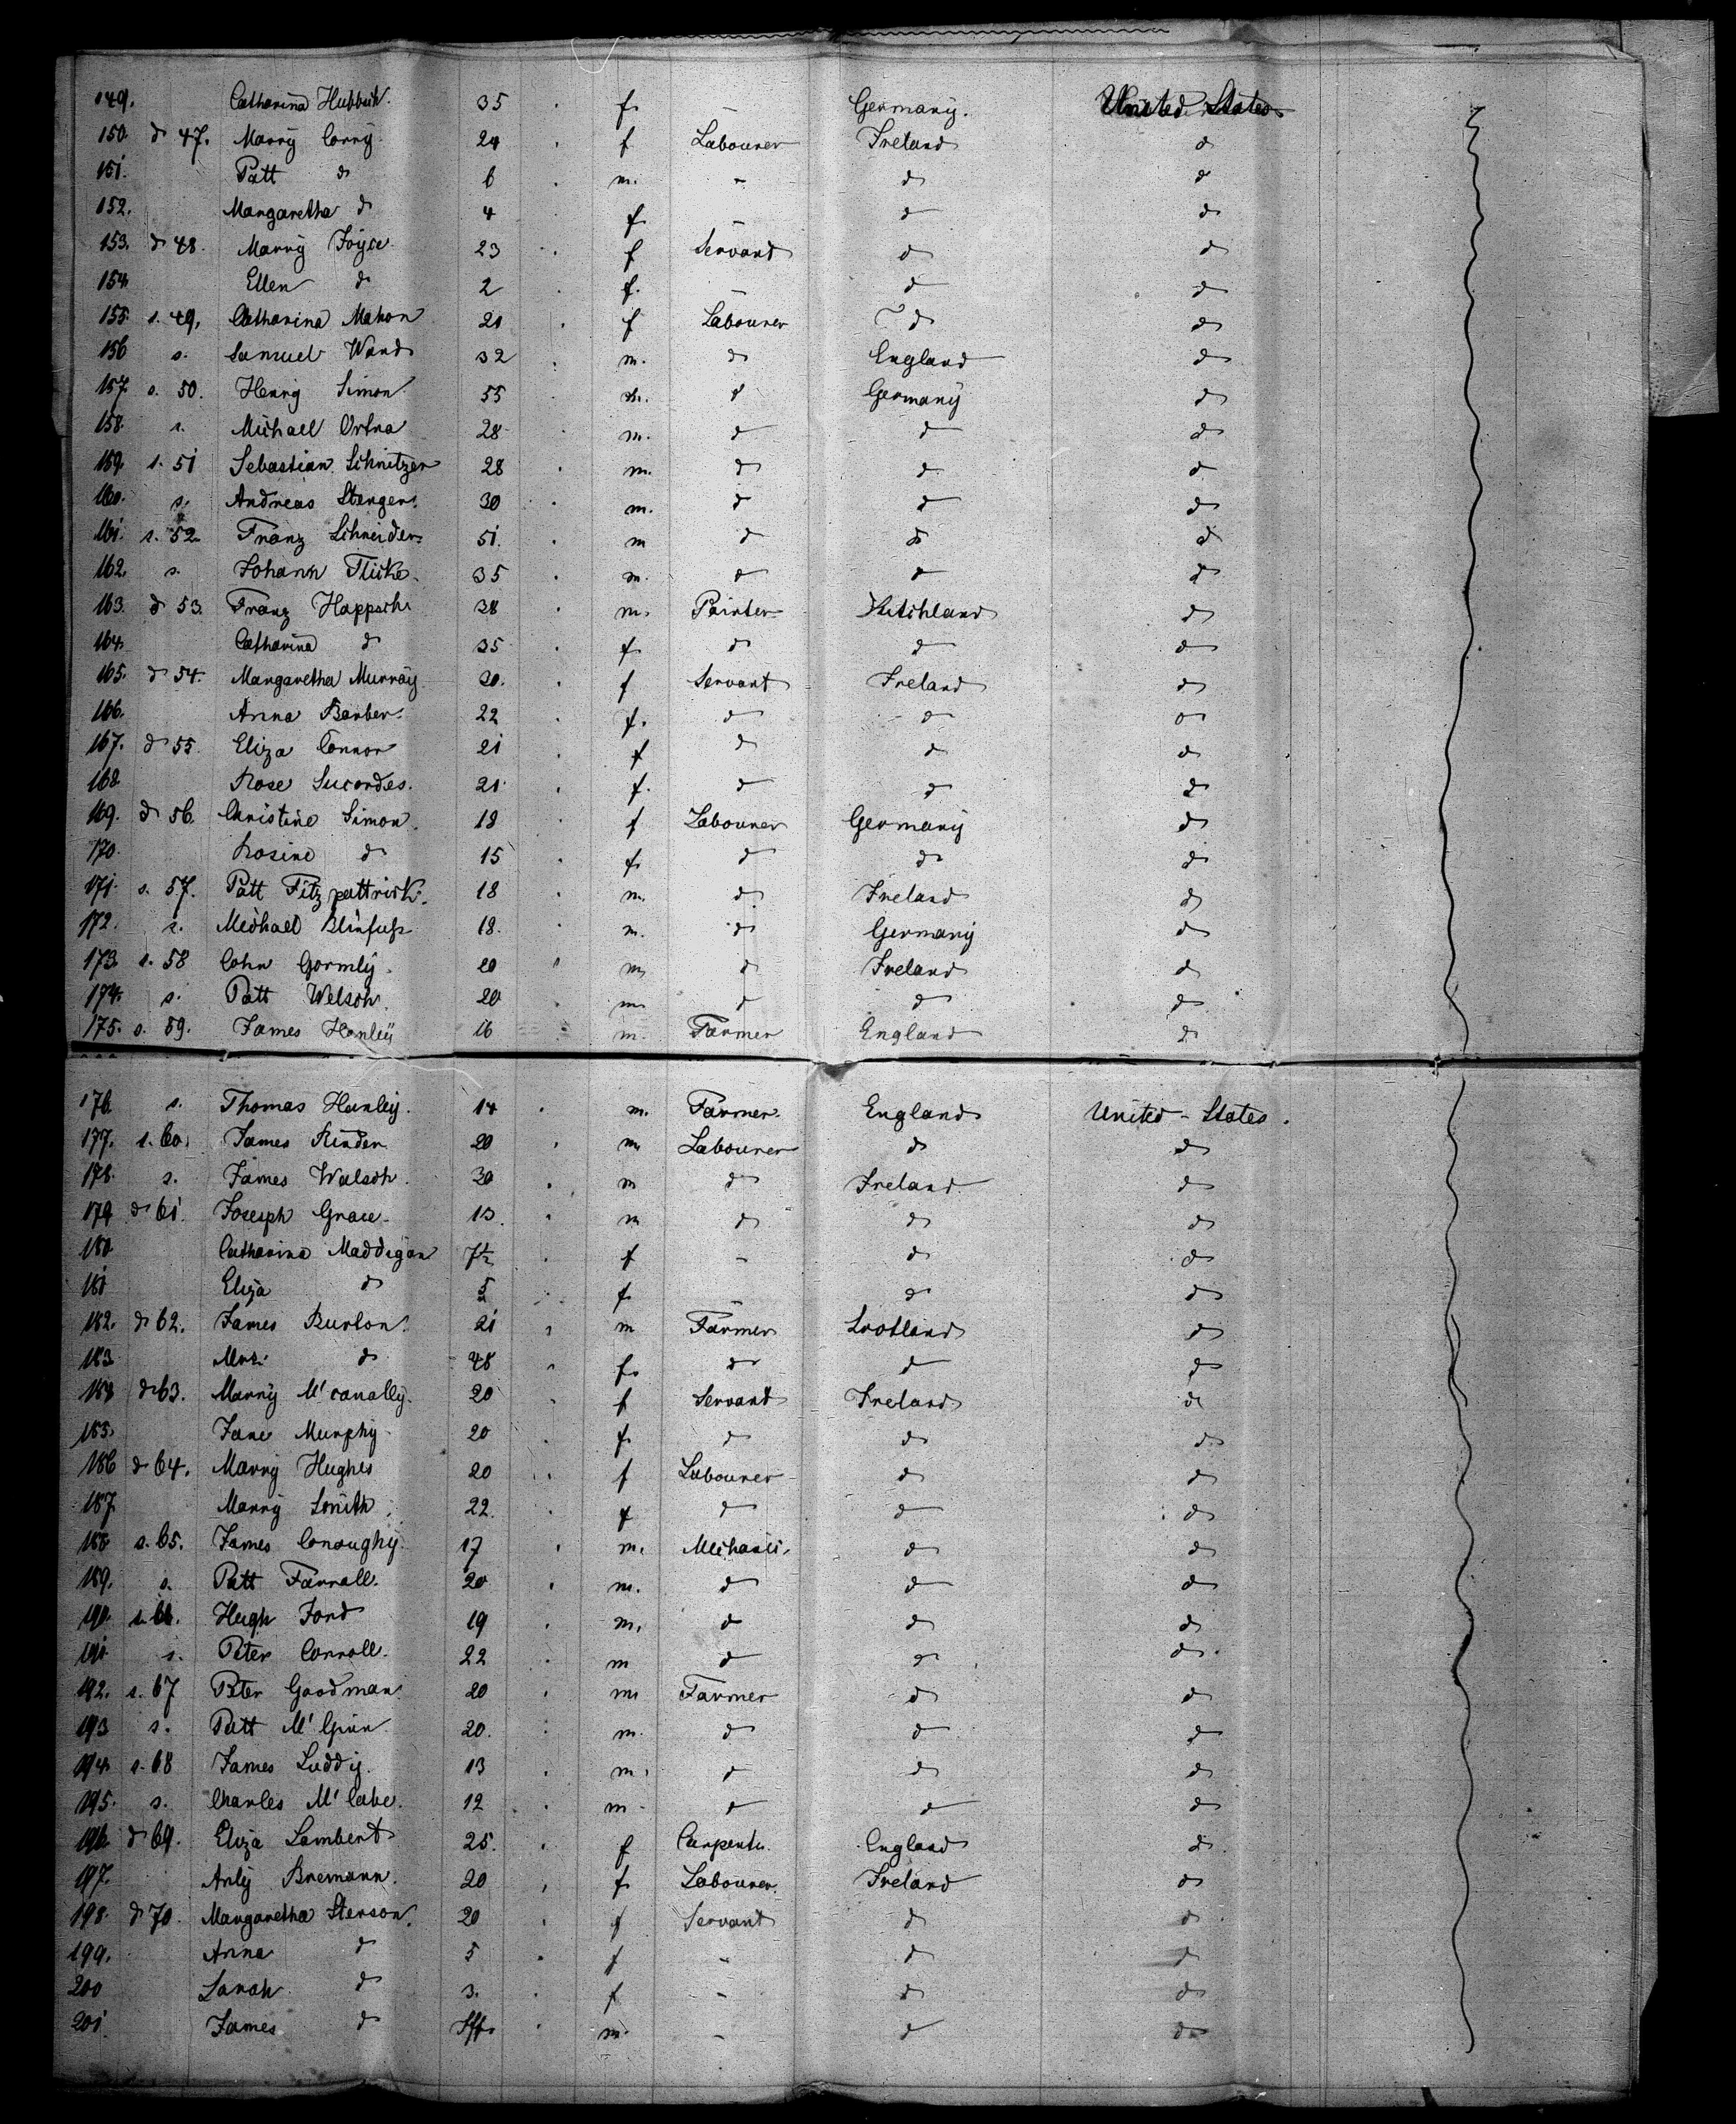 149. Catharina Hubbuch. 35 f. - Germany. United States
150 d 47. Marry Corry. 24 f Labourer Ireland d
151. Patt d 6 m. - d d
152. Margaretha d 4 f - d d
153. d 48. Marry Joyce 23 f Servant d d
154 Ellen d 2 f. - d d
155. s. 49. Catharina Mahon 21 f Labourer d d
156 s. Samuel Ward 32 m. d England d
157. s. 50. Henry Simon 55 m. d Germany d
158. s. Michael Ortna 28 m. d d d
159. s. 51 Sebastian Schnitzer 28 m. d d d
160. s. Andreas Stenger. 30 m. d d d
161. s. 52. Franz Schneider 51. m d d d
162. s. Johann Flicke. 35 m. d d d
163. d 53. Franz Happsch 38 m. Painter d
164. Catharina d 35 f. d d d
165. d 54. Margaretha Murray. 20. f Servant Ireland d
166. Anna Barber. 22 f. d d d
167. d 55. Eliza Connor 21 f d d d
168 Rose Sucordes. 21 f. d d d
169. d 56. Christine Simon. 18 f Labourer Germany d
170. Rosine d 15 f. d d d
171. s. 57. Patt Fitzpattrick. 18 m. d Ireland d
172. s. Michael Blinfuß 18. m. d Germany d
173. s. 58 John Gormly. 20 m. d Ireland d
174. s. Patt Welsch. 20 m. d d d
175. s. 59. James Hanley 16 m. Farmer England d
176. s. Thomas Hanley. 14 m. Farmer England United-States.
177. s. 60. James Rinder 20 m Labourer d d
178. s. James Walsch. 30 m d Ireland d
179 d 61. Joseph Grace. 13. m d d d
180. Catharina Maddigan 7½ f - d d
181 Eliza d 5 f. - d d
182. d 62. James Burton. 21 m Farmer Scotland d
183 Mrs. d 48 f. d d d
184 d 63. Marry M'canally. 20 f Servant Ireland d
185. Jane Murphy 20 f. d d d
186 d 64. Marry Hughes 20 f Labourer d d
187. Marry Smith 22. f d d d
188 s. 65. James Conoughy. 17 m. Mechanic. d d
189. s. Patt Farrall. 20 m. d d d
190. s. 66. Hugh Ford 19 m. d d d
191 s. Peter Carroll. 22 m d d d
192. s. 67 Peter Goodman. 20 m. Farmer d d
193 s. Patt M'Ginn. 20. m. d d d
194. s. 68 James Luddy. 13 m. d d d
195. s. Charles M'Cabe. 12 m. d d d
196. d 69. Eliza Lambert 25. f Carpenter. England d
197. Anly Bremann. 20 f. Labourer. Ireland d
198. d 70. Margaretha Sterson. 20 f Servant d d
199. Anna d 5 f - d d
200 Sarah d 3. f - d d
201. James d m. - d d